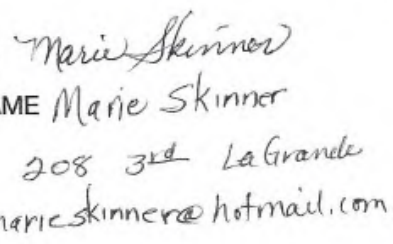 Marie Skinner
AME Marie Skinner
208 3rd LaGrande
marieskinner@hotmail.com